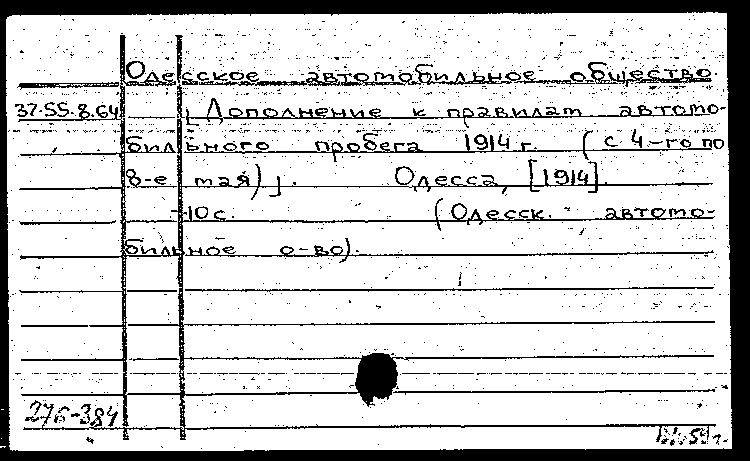 Одесское автомобильное общество.
37.55.8.64 [Дополнение к правилам автомо-
бильного пробега 1914 г. (с 4-го по
8-е мая)]. Одесса, [1914].
10 с. (Одесск. автомо-
бильное о-во).
276-384